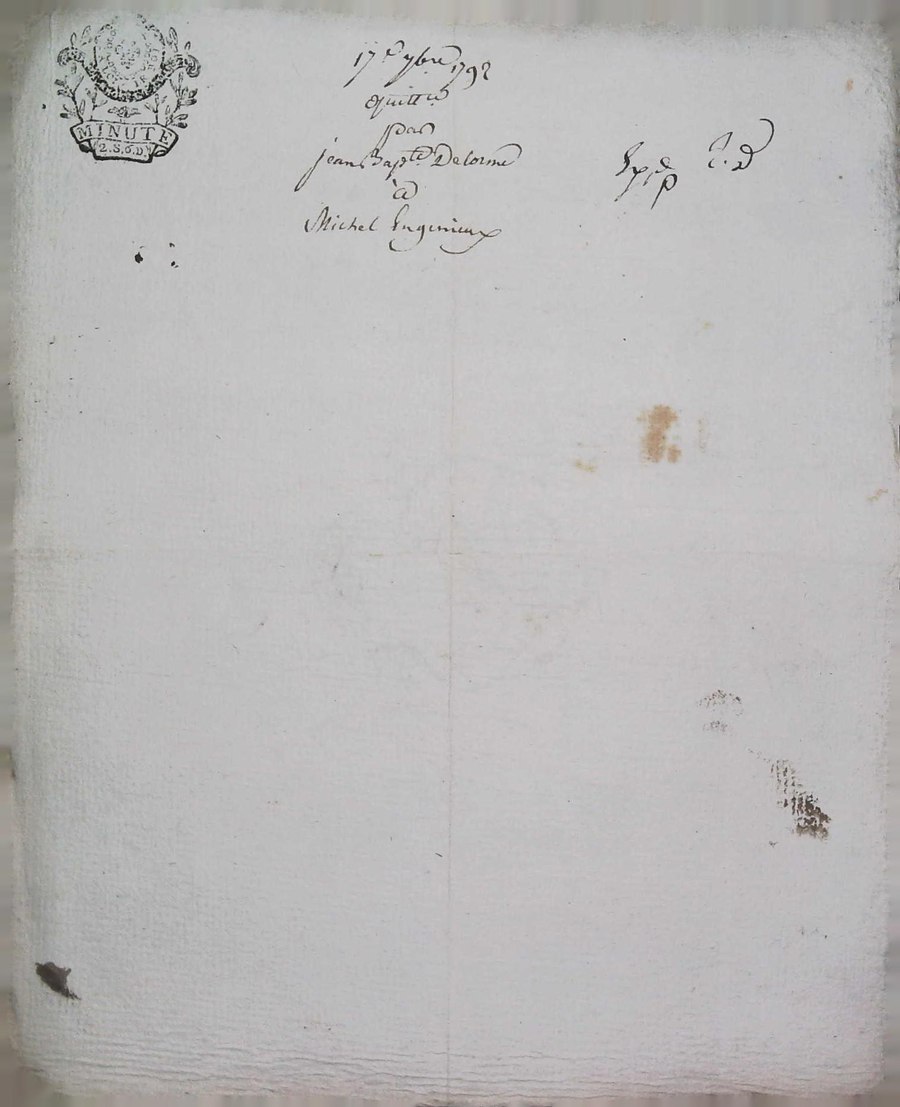 MINUTE
2.S.6.D
17e 7bre 1792
quittce
par
jean Bapte Delorme
à
Michel Enginieux